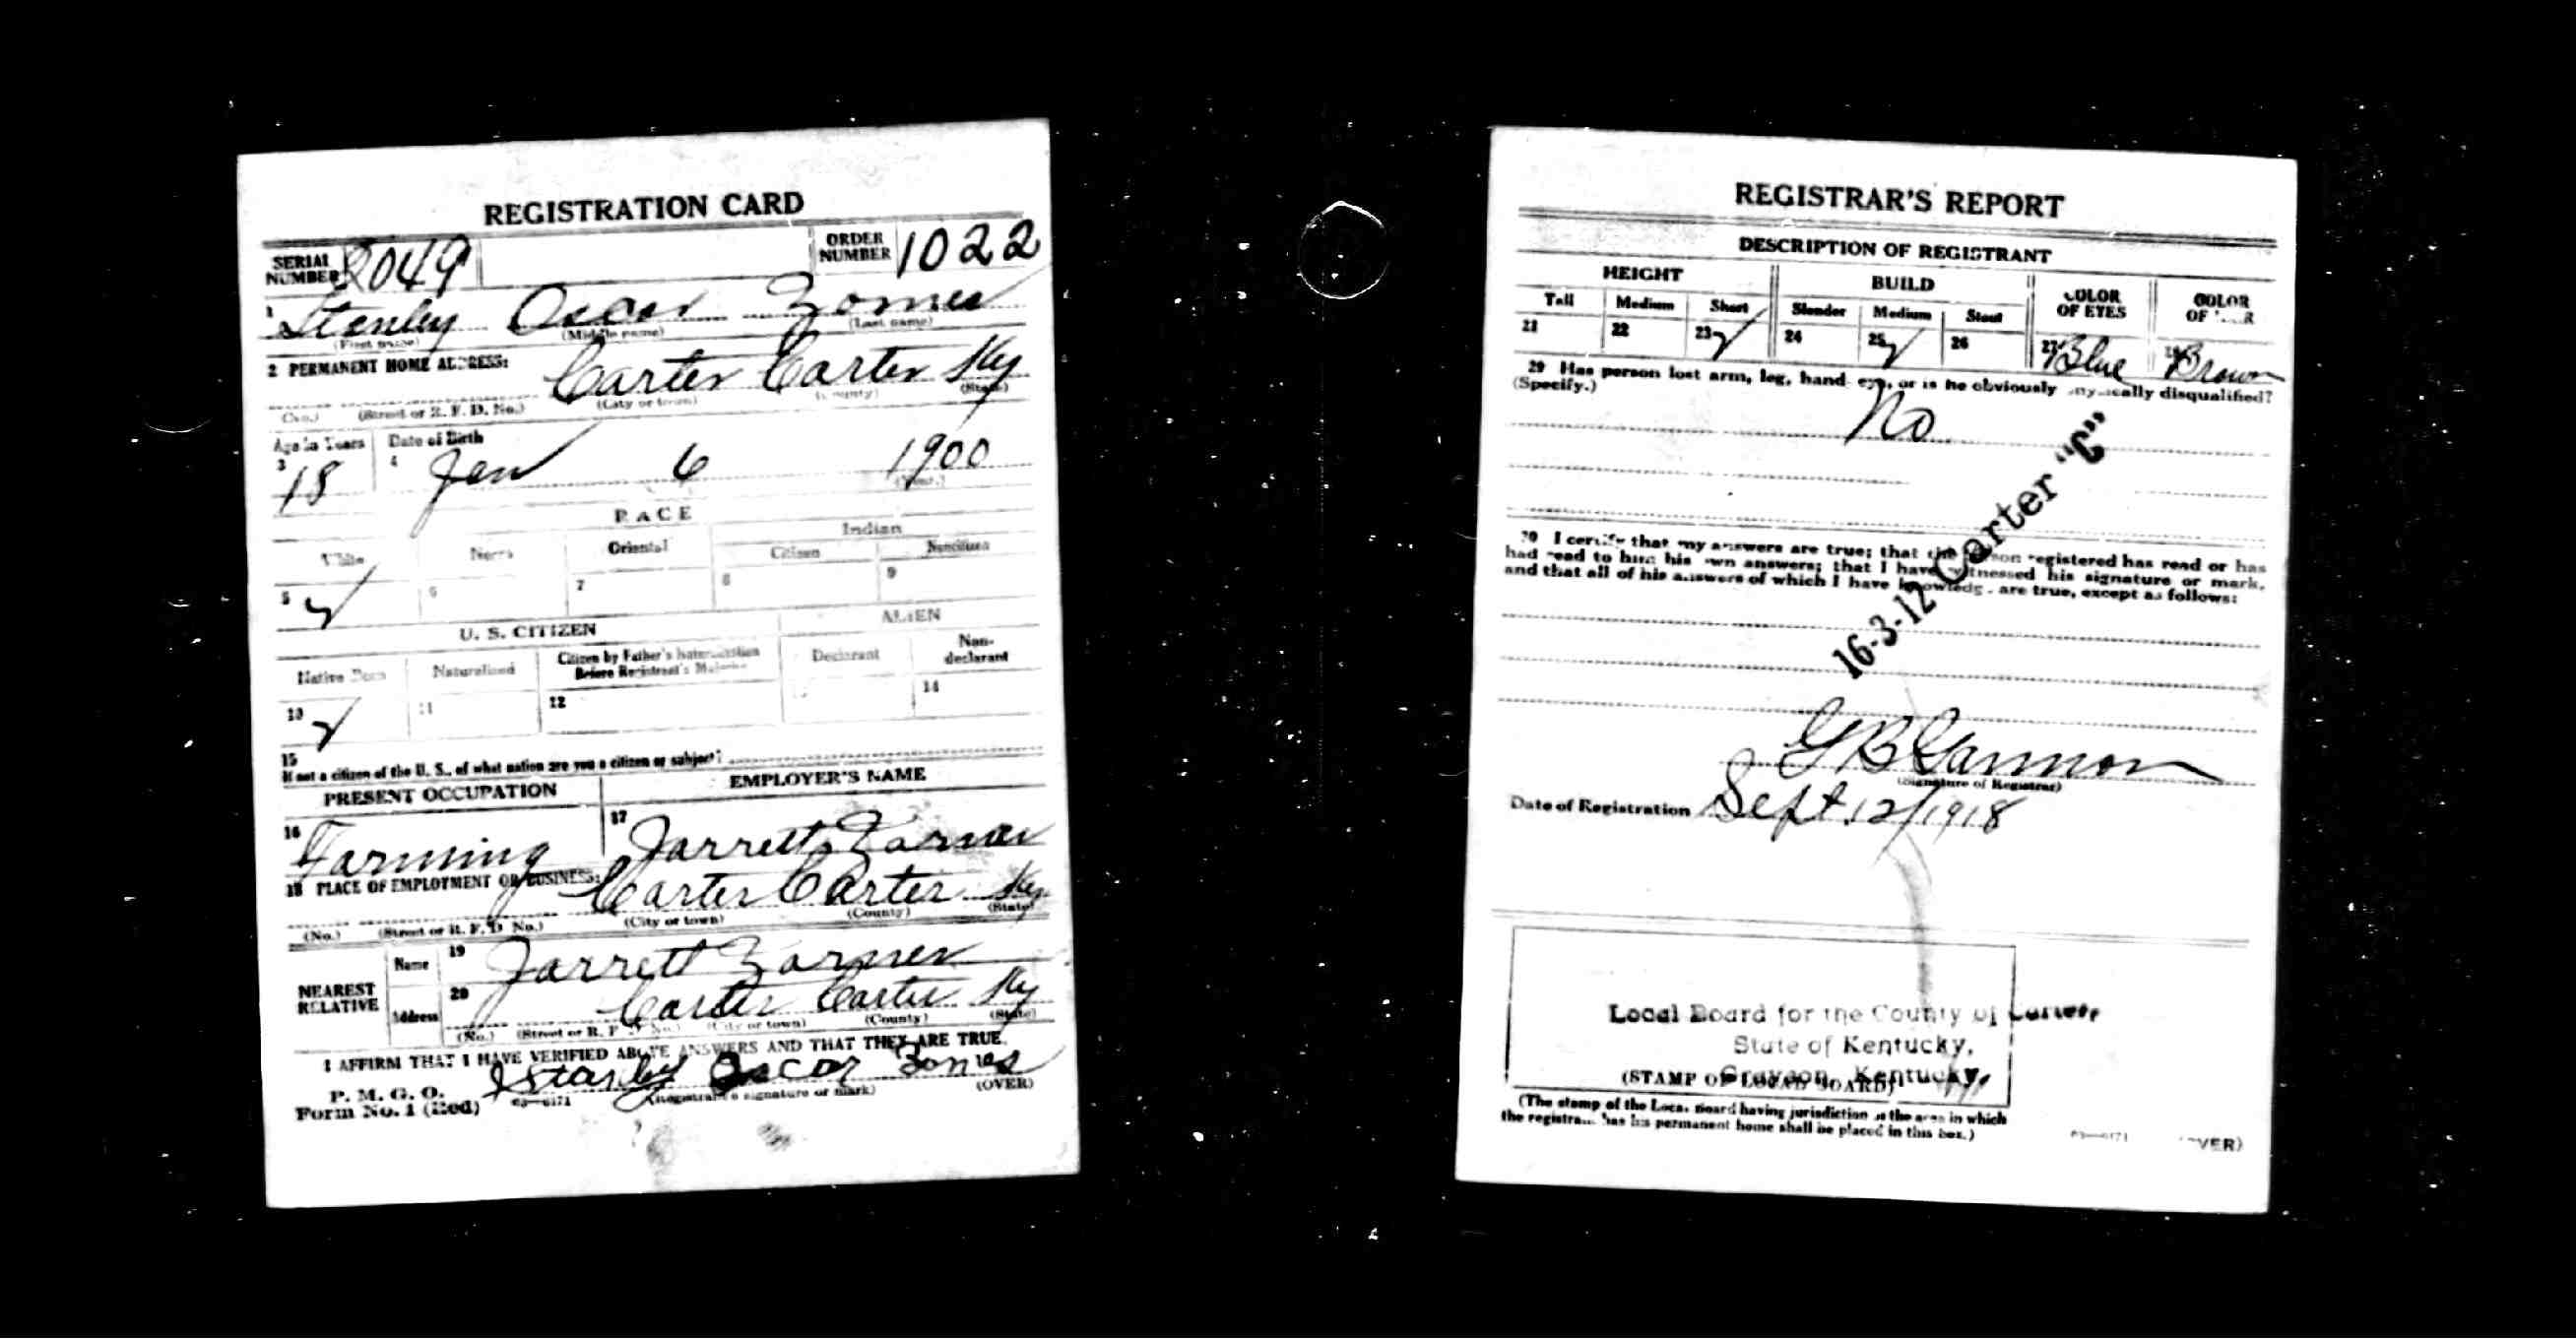 REGISTRATION CARD
SERIAL NUMBER 2049 ORDER NUMBER 1022
1 Stanley Oscar Zornes
(First name) (Middle name) (Last name)
2 PERMANENT HOME ADDRESS:
Carter Carter Ky
(No.) (Street or R. F. D. No.) (City or town) (County) (State)
Age in Years Date of Birth
3 18 4 Jan 6 1900
(Year.)
RACE
White Negro Oriental Indian
Citizen Noncitizen
5 ✓ 6 7 8 9
U. S. CITIZEN ALIEN
Native Born Naturalized Citizen by Father's Naturalization Before Registrant's Majority Declarant Non-declarant
10 ✓ 11 12 13 14
15
If not a citizen of the U. S., of what nation are you a citizen or subject?
PRESENT OCCUPATION EMPLOYER'S NAME
16 Farming 17 Jarrett Zornes
18 PLACE OF EMPLOYMENT OR BUSINESS:
Carter Carter Ky
(No.) (Street or R. F. D. No.) (City or town) (County) (State)
NEAREST RELATIVE
Name 19 Jarrett Zornes
Address 20 Carter Carter Ky
(No.) (Street or R. F. D. No.) (City or town) (County) (State)
I AFFIRM THAT I HAVE VERIFIED ABOVE ANSWERS AND THAT THEY ARE TRUE
P. M. G. O.
Form No. 1 (Red) 03—6171 Stanley Oscar
(Registrant's signature or mark) (OVER)
REGISTRAR'S REPORT
DESCRIPTION OF REGISTRANT
HEIGHT BUILD COLOR OF EYES COLOR OF HAIR
Tall Medium Short Slender Medium Stout
21 22 23 ✓ 24 25 ✓ 26 27 Blue 28 Brown
29 Has person lost arm, leg, hand, eye, or is he obviously physically disqualified?
(Specify.)
No
16-3-12 Carter "C"
30 I certify that my answers are true; that the person registered has read or has
had read to him his own answers; that I have witnessed his signature or mark,
and that all of his answers of which I have knowledge are true, except as follows:
G B Gannon
(Signature of Registrar)
Date of Registration Sept. 12/1918
Local Board for the County of Carter,
State of Kentucky,
Grayson, Kentucky,
(STAMP OF LOCAL BOARD)
(The stamp of the Local Board having jurisdiction of the area in which
the registrant has his permanent home shall be placed in this box.)
03—6171 (OVER)